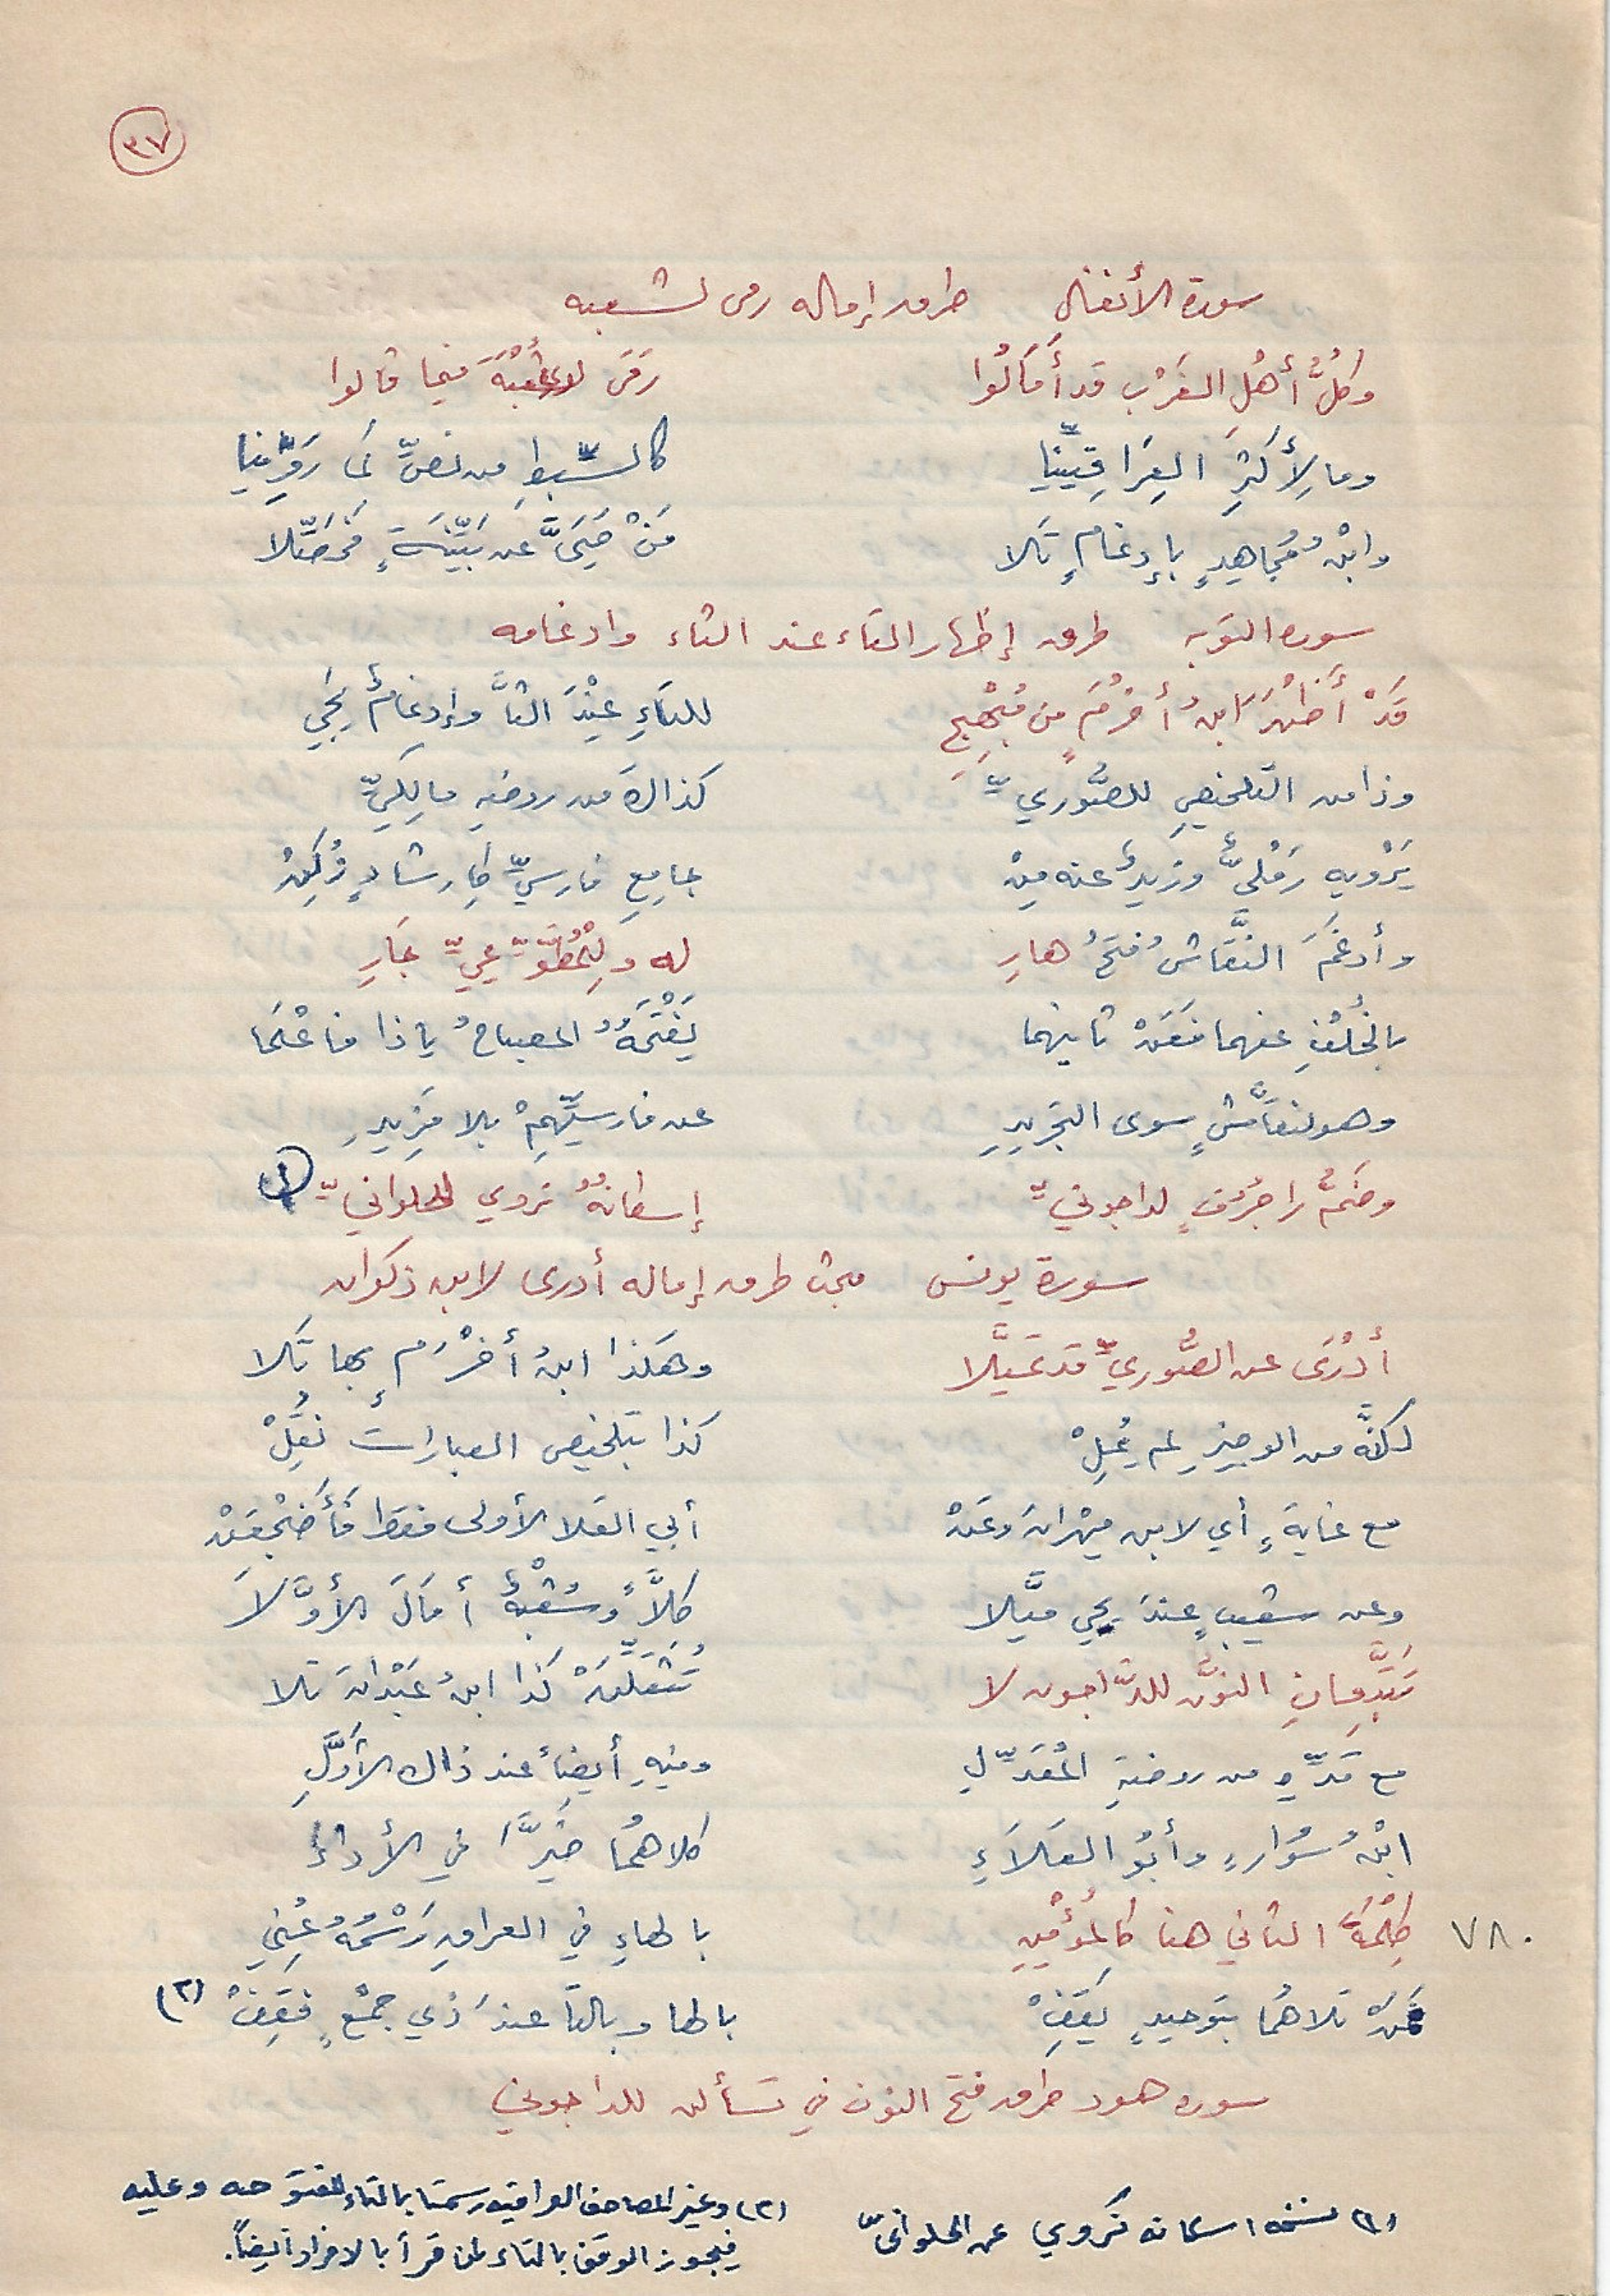 ٣٧
سورة الأنفال طرق إماله رمى لشعبه
وكلُّ أهلِ الغَرْب قد أَمَالُوا رَمَى لشُعْبَةَ فيما قالوا
وما لِأَكْثرِ العِرَاقِيِّينا كالسِّبْطِ من نصٍّ لما رَوَيْنا
وابْنُ مُجاهِدٍ بإِدغامٍ تَلا مَنْ حَيَّ عن بَيِّنَةٍ فحَصِّلا
سوره التوبه طرق إظهار التاء عند الثاء وادغامه
قَدْ أَظْهَرَ ابنُ أَخْرُمٍ من مُبْهِجِ للتاءِ عِنْدَ الثا وإدغامٌ يَجِي
وذا من التلخيصِ للصُّوريِّ كذاك من روضةِ مالِكيِّ
يَرْويه رَمْليٌّ وزيدٌ عنه مِنْ جامِعِ فارسيِّ كإرشادٍ زُكِنْ
وأدغمَ النَّقاشُ فتحُ هارِ له ولِلْمُطَّوِّعيِّ جَارِ
بالخُلْفِ عنهما فعَنْ ثانيهما يَفْتَحُهُ المصباحُ يا ذا فاعْلَما
وهو لنقَّاشٍ سوى التجريدِ عن فارسيِّهِمْ بلا مَزِيدِ
وضَمُّ را جُرُفٍ لداجونيِّ إسكانهُ نروي للحلوانيِّ (١)
سورة يونس مبحث طرق إماله أدرى لابن ذكوان
أدْرَى عن الصُّوريِّ قد تميَّلا وهكذا ابنُ أخْرَمٍ بها تَلا
لكنَّه من الوجيزِ لم يُمِلْ كذا بتلخيص العباراتِ نُقِلْ
مع غايةٍ أي لابن مِهْرانَ وعَنْ أبي العَلا الأولى فقط فأَضْجِعَنْ
وعن شعيبٍ عندَ يحيى ميَّلا كلاًّ وشُعْبةٌ أمَالَ الأوَّلا
تَتَّبِعانِ النونَ للدَّاجون لا تُثَقِّلَنْهُ كذا ابنُ عَبْدانَ تلا
مع مَدِّهِ من روضةِ المُعَدِّلِ وفيهِ أيضاً عند ذاك الأوَّلِ
ابْنُ سُوارٍ وأبُو العَلاَءِ كلاهُما خَيَّرَ في الأداءِ
٧٨٠ كَلِمَةُ الثاني هنا كالمُؤْمِنِ بالهاءِ في العراقِ رَسْمُهُ عُنِي
فمَنْ تلاهُما بتوحيدٍ يَقِفْ بالها وبالتا عندَ ذي جمْعٍ فقِفْ (٢)
سوره هود طرق فتح النون في تسألن للداجوني
(١) نسخه اسكانه نَروي عن الحلوانيّ
(٢) وغير المصاحف العراقيه رسمتا بالتاء المفتوحه وعليه
فيجوز الوقف بالتاء لمن قرأ بالافراد أيضاً.